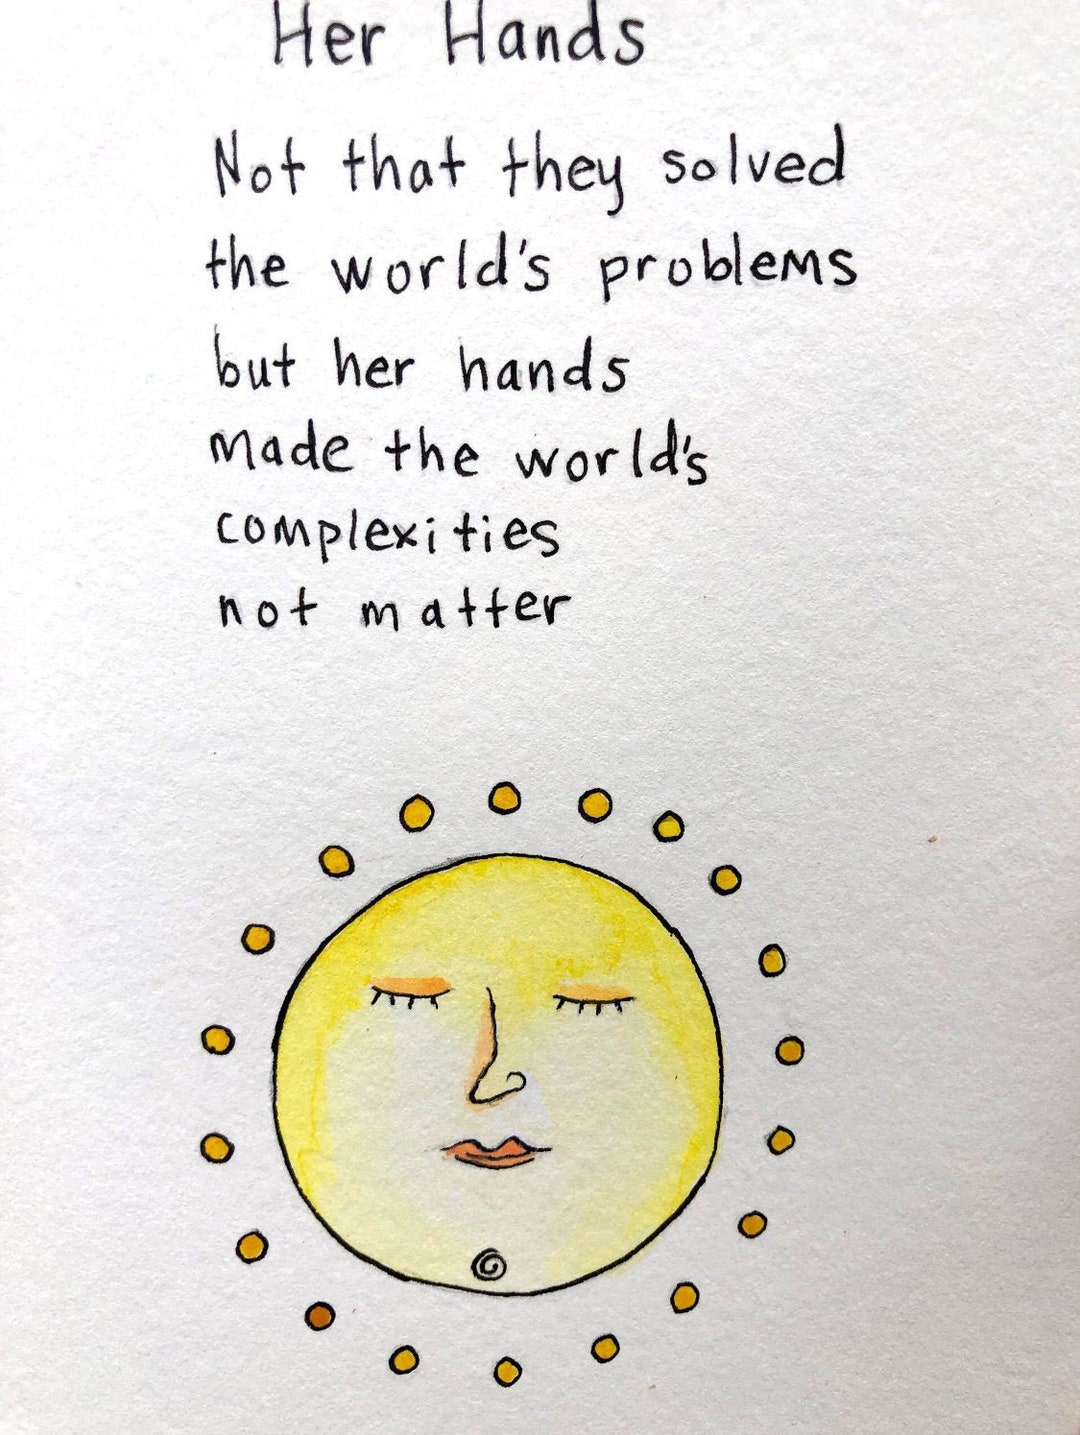 Her Hands
Not that they solved
the world's problems
but her hands
made the world's
complexities
not matter